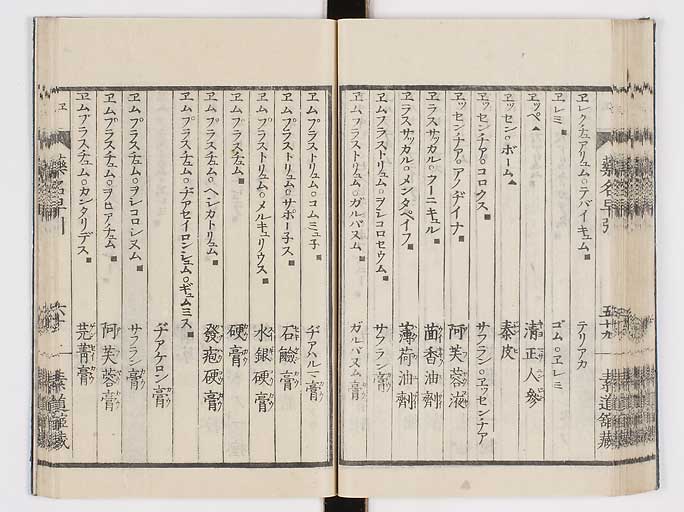 ヱレクチュアリュム○テバイキュム■ テリアカ
ヱレミ■ ゴム○ヱレミ
ヱッペ▲ 清正人參
ヱッセン○ボーム▲ 秦皮
ヱッセンチア○コロクス■ サフラン○ヱッセンチア
ヱッセンチア○アノヂイナ■ 阿芙蓉液
ヱラスサッカル○フーニキュル■ 茴香油劑
ヱラスサッカル○メンタペイフ■ 薄荷油劑
ヱムプラストリュム○ヲシコロセウム■ サフラン膏
ヱムプラストリュム○ガルバヌム■ ガルバヌム膏
藥名早引 五十九 素道館藏
ヱムプラストリュム○コムミュ子■ ヂアハルマ膏
ヱムプラストリュム○サポー子ス■ 石鹼膏
ヱムプラストリュム○メルキュリウス■ 水銀硬膏
ヱムプラスチュム■ 硬膏
ヱムプラスチュム○ヘシカトリュム■ 發疱硬膏
ヱムプラスチュム○ヂアセイロンシュム○ギュムミス■ ヂアケロン膏
ヱムプラスチュム○ヲシコロシヌム■ サフラン膏
ヱムプラスチュム○ヲヒアチュム■ 阿芙蓉膏
ヱムプラスチュム○カンタリデス■ 芫菁膏
ヱ 藥名早引 六十 素道館藏